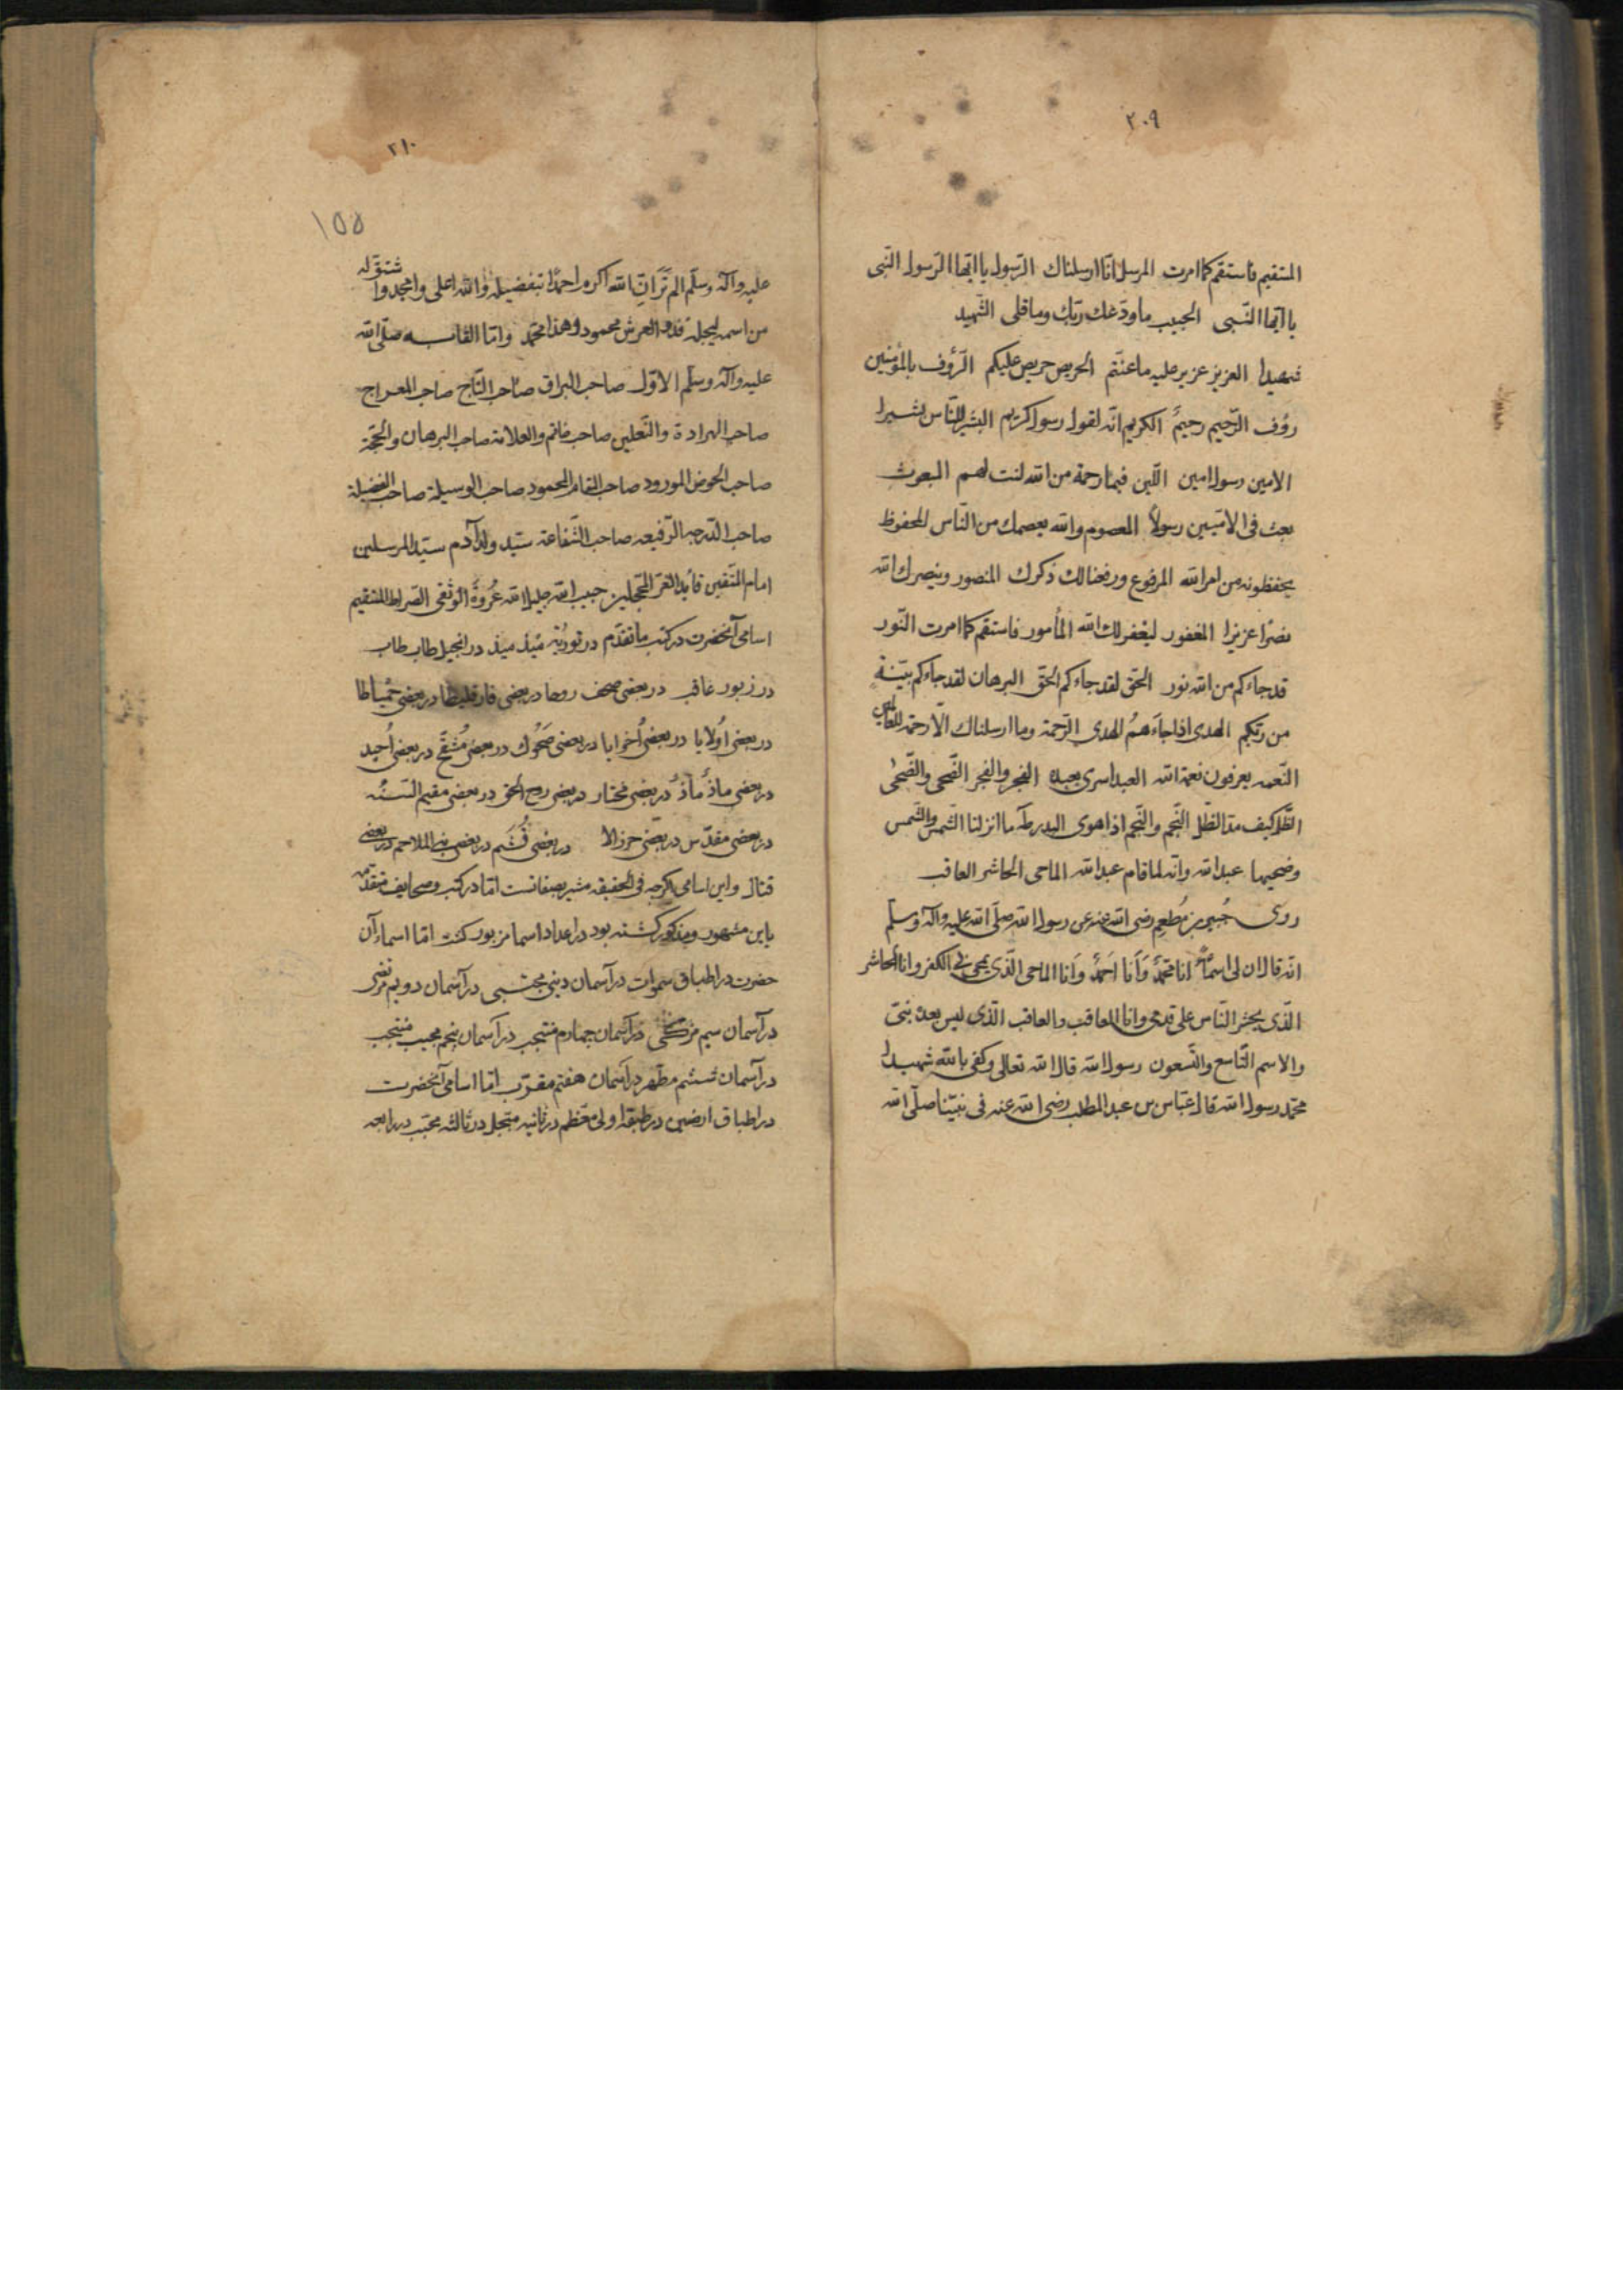 ٢٠٩
المستقيم فاستقم كما امرت المرسل انّا ارسلناك الرّسول يا ايّها الرّسول النّبى
يا ايّها النّبى الحبيب ما ودّعك ربّك وما قلى الشّهيد
شهيدا العزيز عزيز عليه ما عنتّم الحريص حريص عليكم الرّؤف بالمؤمنين
رؤف الرّحيم رحيمٌ الكريم انّه لقول رسول كريم البشير للنّاس بشيرا
الامين رسول امين اللّين فبما رحمة من الله لنت لهم المبعوث
بعث فى الامّيين رسولاً المعصوم والله يعصمك من النّاس المحفوظ
يحفظونه من امر الله المرفوع ورفعنا لك ذكرك المنصور وينصرك الله
نصرًا عزيزا المغفور ليغفر لك الله المأمور فاستقم كما امرت النّور
قد جاءكم من الله نور الحقّ لقد جاءكم الحقّ البرهان لقد جاءكم بيّنة
من ربّكم الهدى اذا جاءهمُ الهدى الرّحمة وما ارسلناك الّا رحمة للعالمين
النّعمه يعرفون نعمة الله العبد اسرى بعبده الفجر والفجر الضّحى والضّحى
الظّل كيف مدّ الظّل النّجم والنّجم اذا هوى البدر طه ما انزلنا الشّمس والشّمس
وضحيها عبد الله وانّه لما قام عبد الله الماحى الحاشر العاقب
روى جُبير بن مُطعِم رضى الله عنه عن رسول الله صلّى الله عليه وآله وسلّم
انّه قال ان لى اسمآءً انا محمّدٌ وَأنا احمدٌ وَأنا الماحى الّذى يمحى بى الكفر وانا الحاشر
الّذى يحشر النّاس على قدمى وانا العاقب والعاقب الّذى ليس بعده نبىّ
والاسم التّاسع والتّسعون رسول الله قال الله تعالى وكفى بالله شهيدا
محمّد رسول الله قال عبّاس بن عبد المطلب رضى الله عنه فى نبيّنا صلّى الله
٢١٠
١٥٥
عليه وآله وسلّم الم تَرَ انّ الله اكرم احمدًا بتفضيله والله اعلى وامجد وا
شتقّ له
من اسمه ليجلّه فذو العرش محمود وهذا محمّد وامّا القابه صلّى الله
عليه وآله وسلّم الاوّل صاحب البراق صاحب التّاج صاحب المعراج
صاحب الهراوة والنّعلين صاحب خاتم والعلامة صاحب البرهان والحجّة
صاحب الحوض المورود صاحب المقام المحمود صاحب الوسيلة صاحب الفضيلة
صاحب الدّرجه الرّفيعه صاحب الشّفاعة سيّد ولد آدم سيّد المرسلين
امام المتّقين قائد الغرّ المحجّلين حبيب الله خليل الله عُروةَ الوثقى الصّراط المستقيم
اسامى آنحضرت در كتب ما تقدّم در تورٰية ميذ ميذ در انجيل طاب طاب
در زبور عاقب در بعضى صحف روحا در بعضى فارقليطا در بعضى حمياطا
در بعضى اُولايا در بعضى اُخرايا در بعضى ضَحُوك در بعضى مُشَفّح در بعضى اُحيد
در بعضى ماذ مأذ در بعضى مختار در بعضى روح الحق در بعضى مقيم السّنُه
در بعضى مقدّس در بعضى حرزالا در بعضى قُثَم در بعضى نبى الملاحم در بعضى
قتال واين اسامى اكرچه فى الحقيقه مشير بصفاتست امّا در كتب وصحايف متقدّمه
باين مشهور ومذكور كشته بود در اعداد اسما مزبور كشت امّا اسماء آن
حضرت در اطباق سموات در آسمان دنيى مجتبى در آسمان دويم مرتضى
در آسمان سيم مزكّى در آسمان چهارم منتجب در آسمان پنجم مجيب منتجب
در آسمان ششم مطهّر در آسمان هفتم مقرّب امّا اسامى آنحضرت
در اطباق ارضين در طبقهٔ اولى معظم در ثانيه متبجل در ثالثه مجتب در رابعه